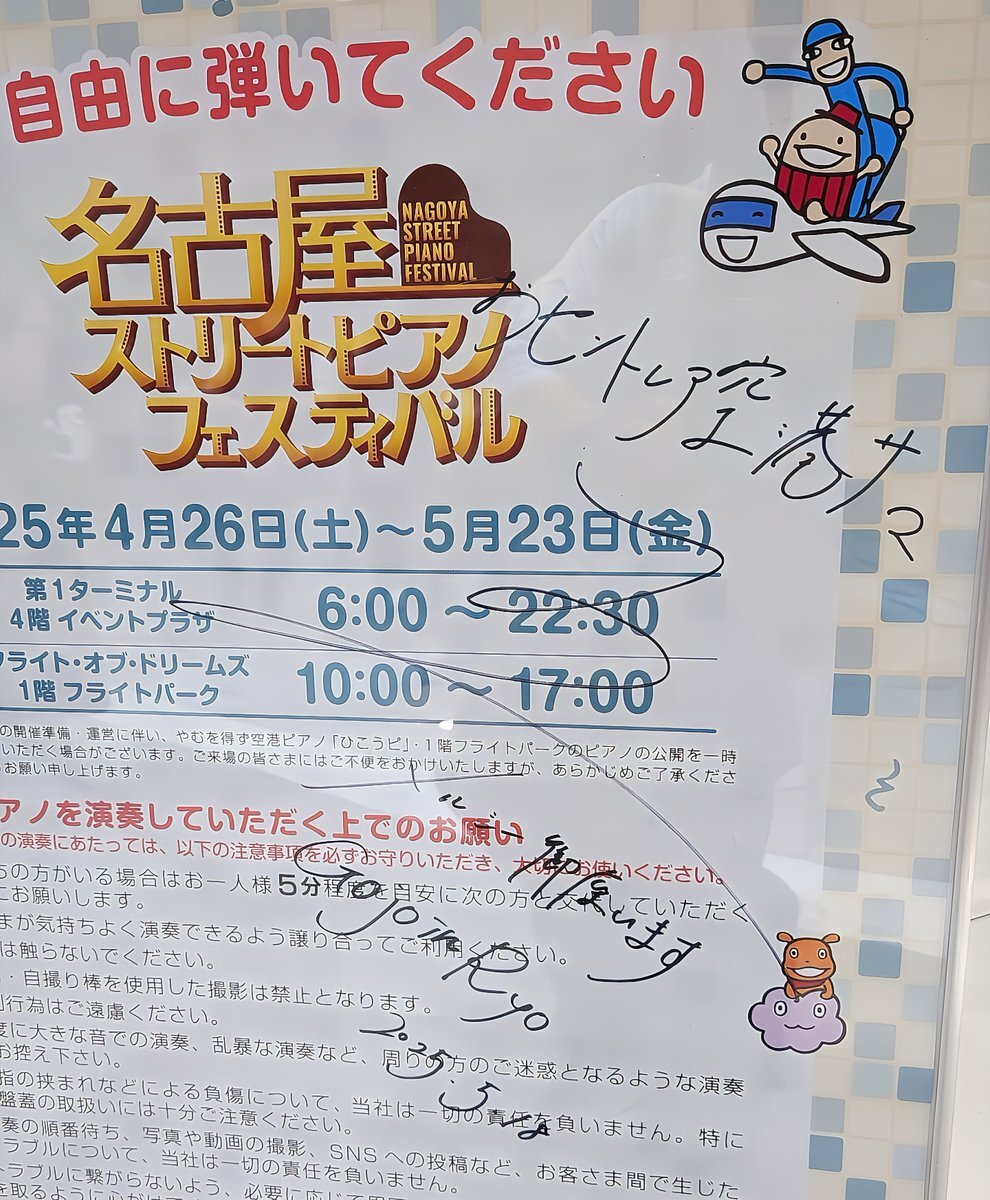 自由に弾いてください
名古屋
NAGOYA
STREET
PIANO
FESTIVAL
ストリートピアノ
フェスティバル
セントレア空港サマ
25年4月26日(土)～5月23日(金)
第1ターミナル
4階 イベントプラザ
6:00 ～ 22:30
フライト・オブ・ドリームズ
1階 フライトパーク
10:00 ～ 17:00
の開催準備・運営に伴い、やむを得ず空港ピアノ「ひこうピ」・1階フライトパークのピアノの公開を一時
いただく場合がございます。ご来場の皆さまにはご不便をおかけいたしますが、あらかじめご了承くださ
お願い申し上げます。
アノを演奏していただく上でのお願い
の演奏にあたっては、以下の注意事項を必ずお守りいただき、大切にお使いください。
ちの方がいる場合はお一人様5分程度を目安に次の方と交代していただく
にお願いします。
まが気持ちよく演奏できるよう譲り合ってご利用ください。
は触らないでください。
・自撮り棒を使用した撮影は禁止となります。
行為はご遠慮ください。
度に大きな音での演奏、乱暴な演奏など、周りの方のご迷惑となるような演奏
お控え下さい。
指の挟まれなどによる負傷について、当社は一切の責任を負いません。特に
盤蓋の取扱いには十分ご注意ください。
奏の順番待ち、写真や動画の撮影、SNSへの投稿など、お客さま間で生じた
ラブルについて、当社は一切の責任を負いません。
トラブルに繋がらないよう、必要に応じて
います
Ryo
2025.5